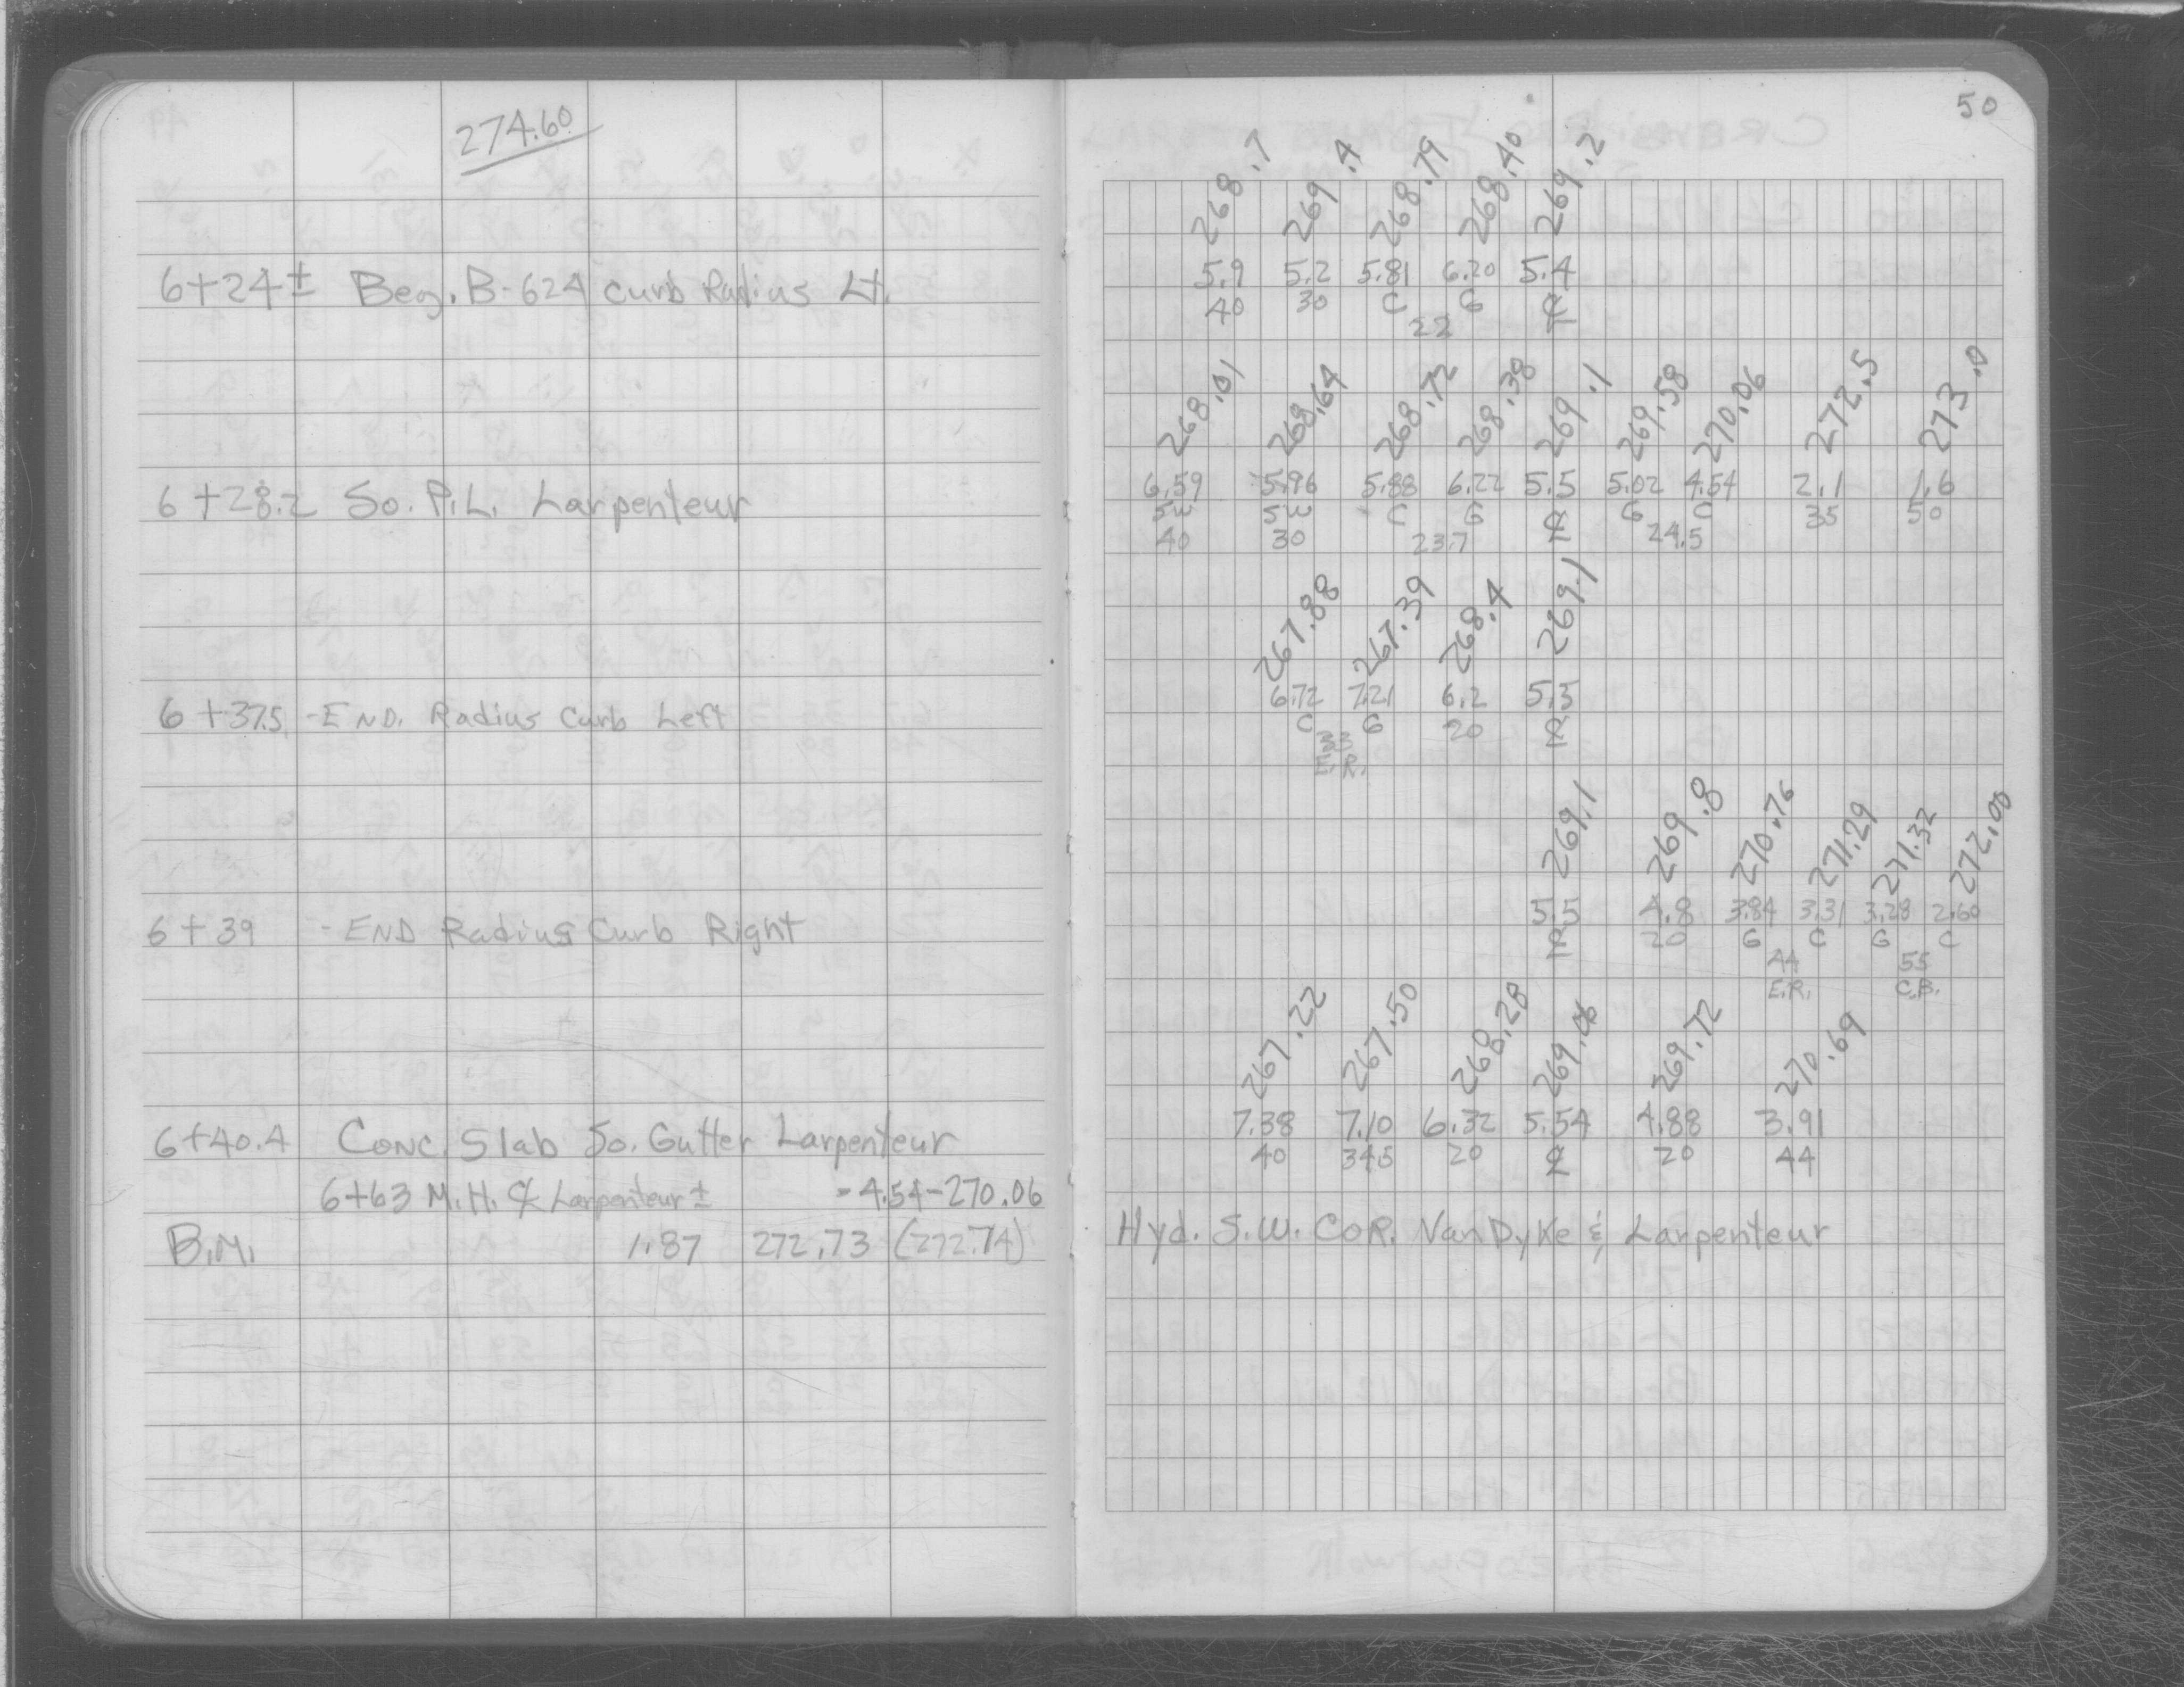 274.60
6+24± Beg. B-624 Curb Radius Lt.
6+28.2 So. P.L. Larpenteur
6+37.5 -END. Radius Curb Left
6+39 -END Radius Curb Right
6+40.4 Conc. Slab So. Gutter Larpenteur
6+63 M.H. ℄ Larpenteur± -4.54-270.06
B.M. 1.87 272.73 (272.74)
50
268.7 269.4 268.79 268.40 269.2
5.9 5.2 5.81 6.20 5.4
40 30 C G ℄
22
268.01 268.64 268.72 268.38 269.1 269.58 270.06 272.5 273.0
6.59 5.96 5.88 6.22 5.5 5.02 4.54 2.1 1.6
SW SW C G ℄ G C 35 50
40 30 23.7 24.5
267.88 267.39 268.4 269.1
6.72 7.21 6.2 5.5
C G 20 ℄
33
E.R.
269.1 269.8 270.76 271.29 271.32 272.00
5.5 4.8 3.84 3.31 3.28 2.60
℄ 20 G C G C
44 55
E.R. C.B.
267.22 267.50 268.28 269.06 269.72 270.69
7.38 7.10 6.32 5.54 4.88 3.91
40 34.5 20 ℄ 20 44
Hyd. S.W. COR. VanDyke & Larpenteur